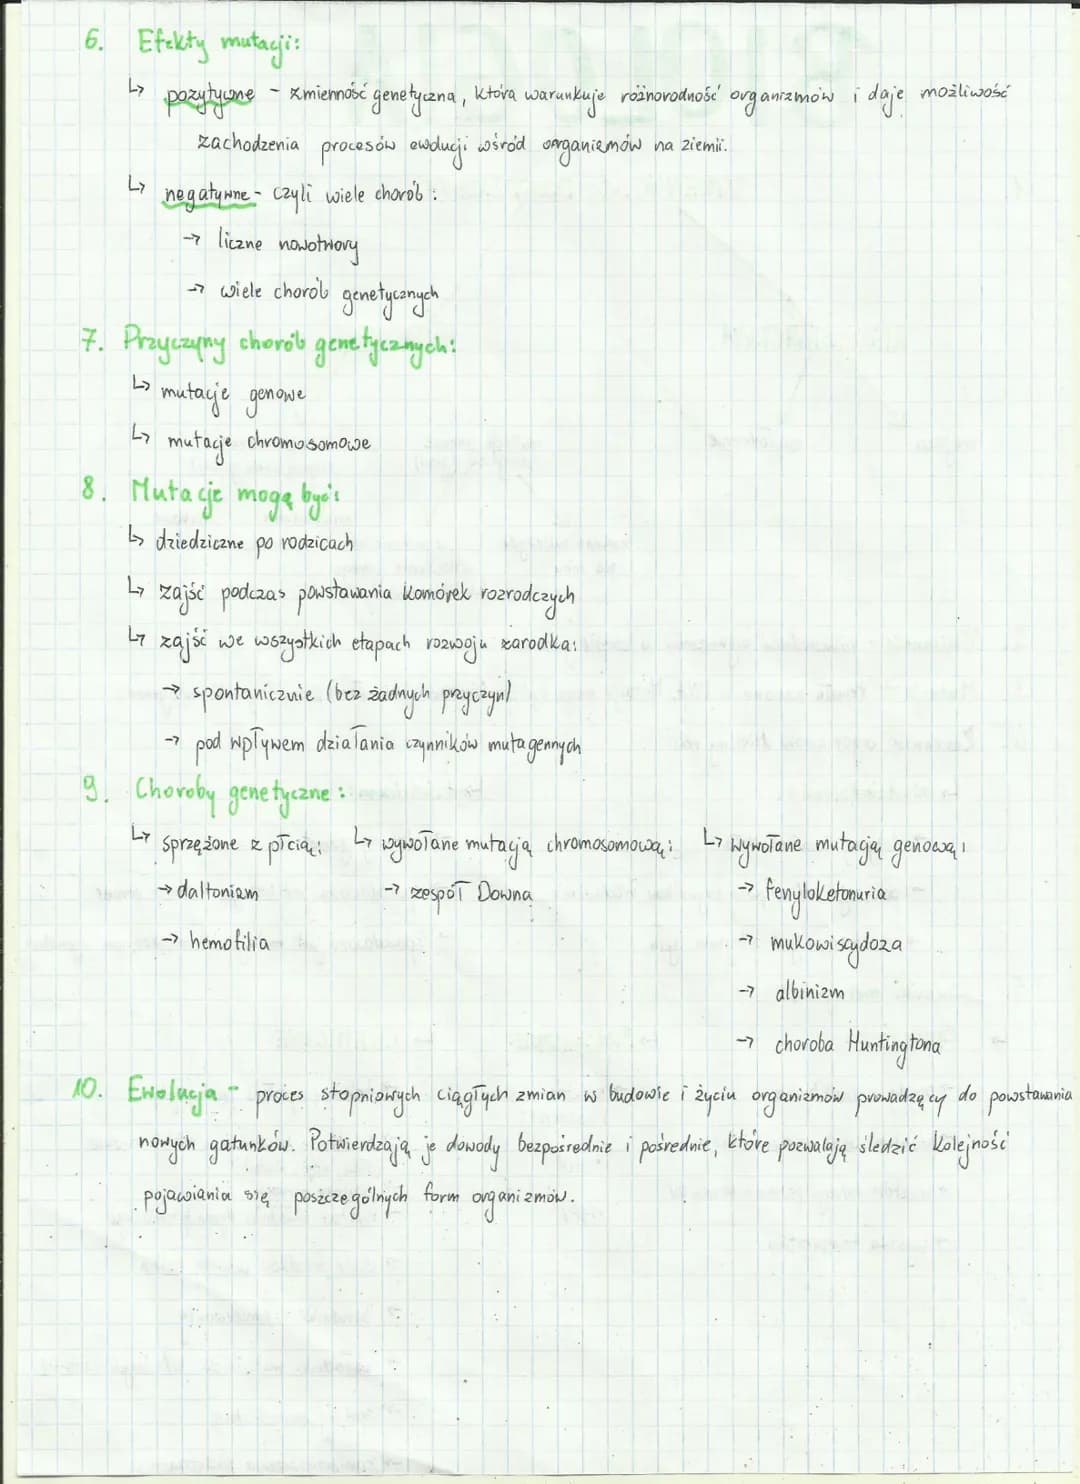 6. Efekty mutacji:
↳ pozytywne - zmienność genetyczna, która warunkuje różnorodność organizmów i daje możliwość
zachodzenia procesów ewolucji wśród organizmów na ziemii.
↳ negatywne - czyli wiele chorób:
→ liczne nowotwory
→ wiele chorób genetycznych
7. Przyczyny chorób genetycznych:
↳ mutacje genowe
↳ mutacje chromosomowe
8. Mutacje mogą być:
↳ dziedziczne po rodzicach
↳ zajść podczas powstawania komórek rozrodczych
↳ zajść we wszystkich etapach rozwoju zarodka:
→ spontanicznie (bez żadnych przyczyn)
→ pod wpływem działania czynników mutagennych
9. Choroby genetyczne:
↳ sprzężone z płcią: ↳ wywołane mutacją chromosomową: ↳ wywołane mutacją genową:
→ daltonizm → zespół Downa → fenyloketonuria
→ hemofilia → mukowiscydoza
→ albinizm
→ choroba Huntingtona
10. Ewolucja - proces stopniowych ciągłych zmian w budowie i życiu organizmów prowadzący do powstawania
nowych gatunków. Potwierdzają je dowody bezpośrednie i pośrednie, które pozwalają śledzić kolejność
pojawiania się poszczególnych form organizmów.